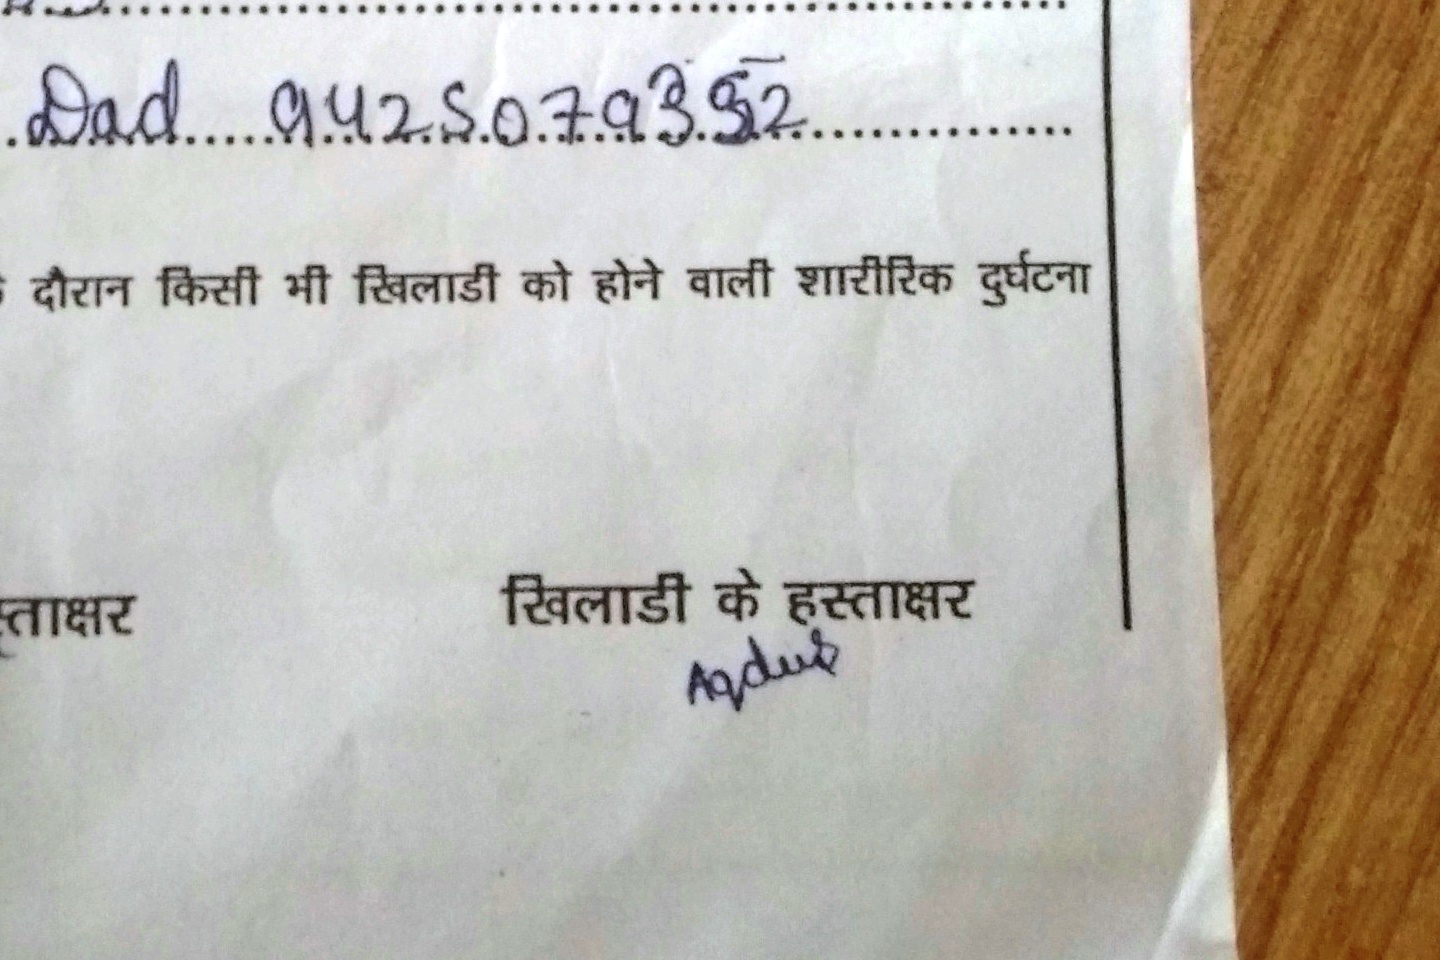 Dad 9425079352
दौरान किसी भी खिलाडी को होने वाली शारीरिक दुर्घटना
स्ताक्षर खिलाडी के हस्ताक्षर